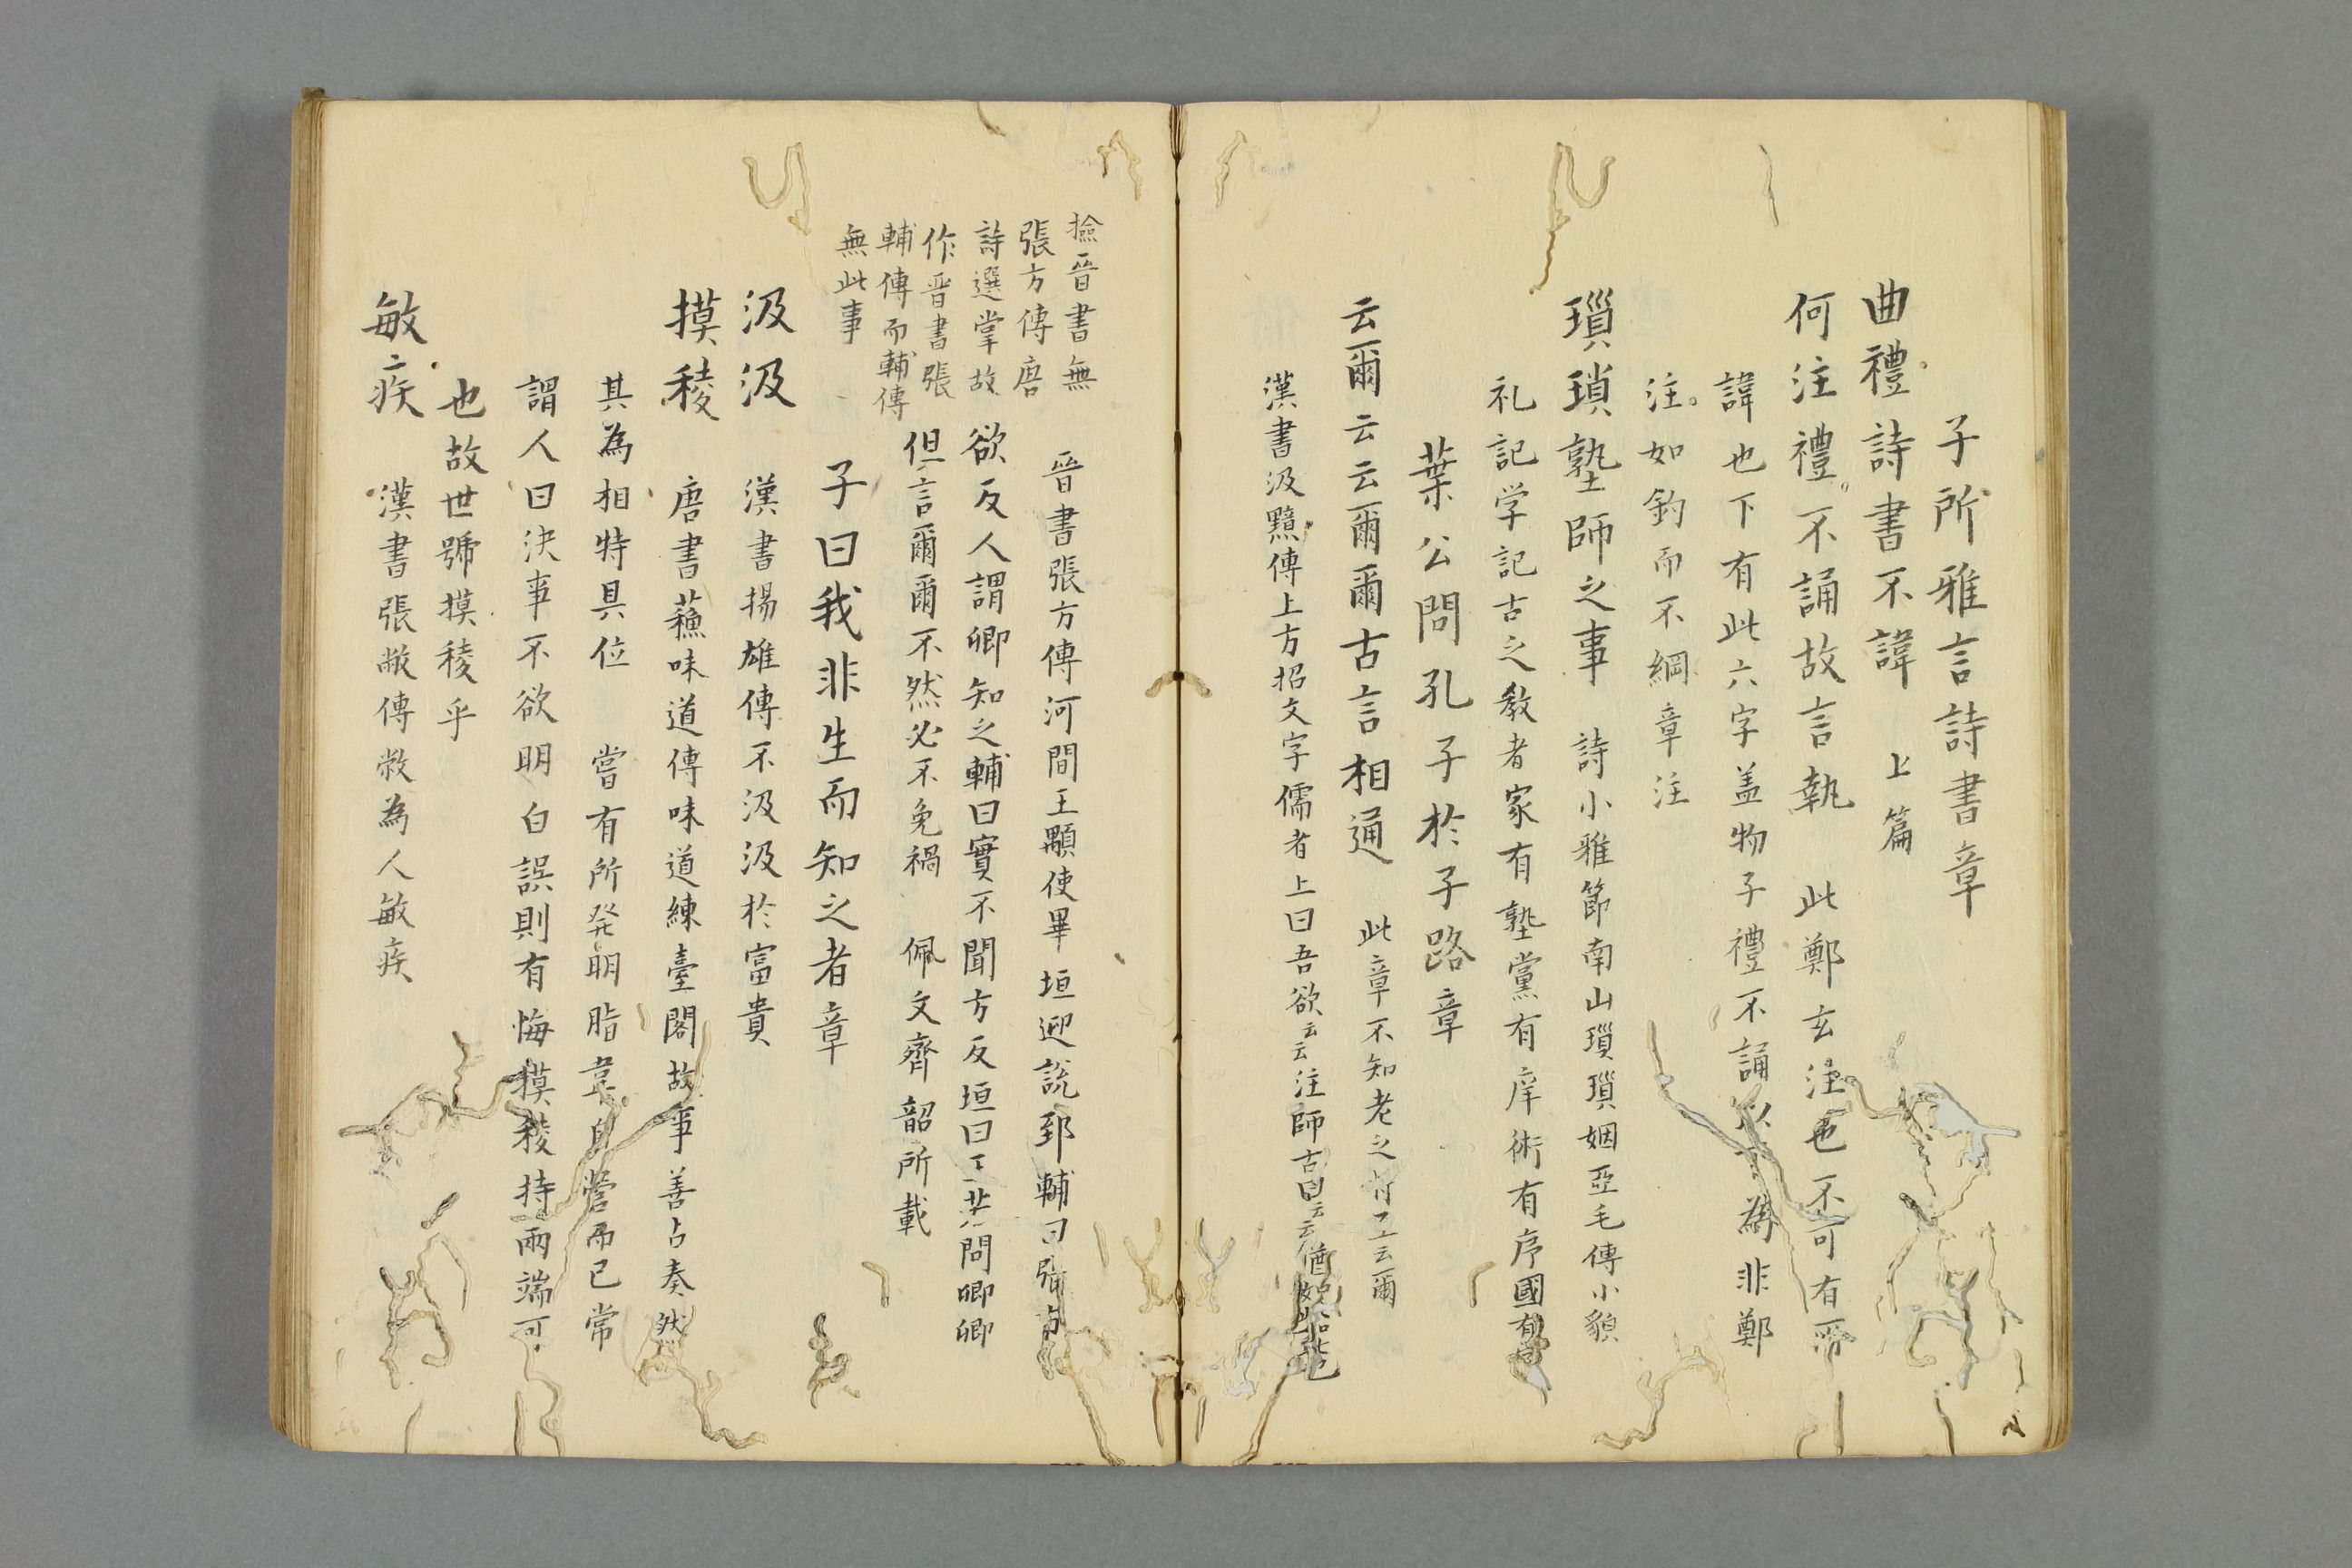 子所雅言詩書章
曲禮詩書不諱 上篇
何注禮不誦故言執 此鄭玄注也不可有所
諱也下有此六字盖物子禮不誦以為非鄭
注如釣而不綱章注
瑣瑣塾師之事 詩小雅節南山瑣瑣姻亞毛傳小貌
礼記学記古之教者家有塾黨有庠術有序國有
葉公問孔子於子路章
云爾云云爾爾古言相通 此章不知老之 云爾
漢書汲黯傳上方招文字儒者上曰吾欲云云注師古曰云云猶
撿晉書無
張方傳唐
詩選掌故
作晋書張
輔傳而輔傳
無此事
晉書張方傳河間王顒使畢垣迎說郅輔曰張方
欲反人謂卿知之輔曰實不聞方反垣曰王若問卿卿
但言爾爾不然必不免禍 佩文齊韶所載
子曰我非生而知之者章
汲汲 漢書揚雄傳不汲汲於富貴
摸稜 唐書蘓味道傳味道練臺閣故事善占奏然
其為相特具位 嘗有所発明脂韋自營而已常
謂人曰决事不欲明白誤則有悔摸稜持兩端可
也故世號摸稜乎
敏疾 漢書張敞傳敞為人敏疾